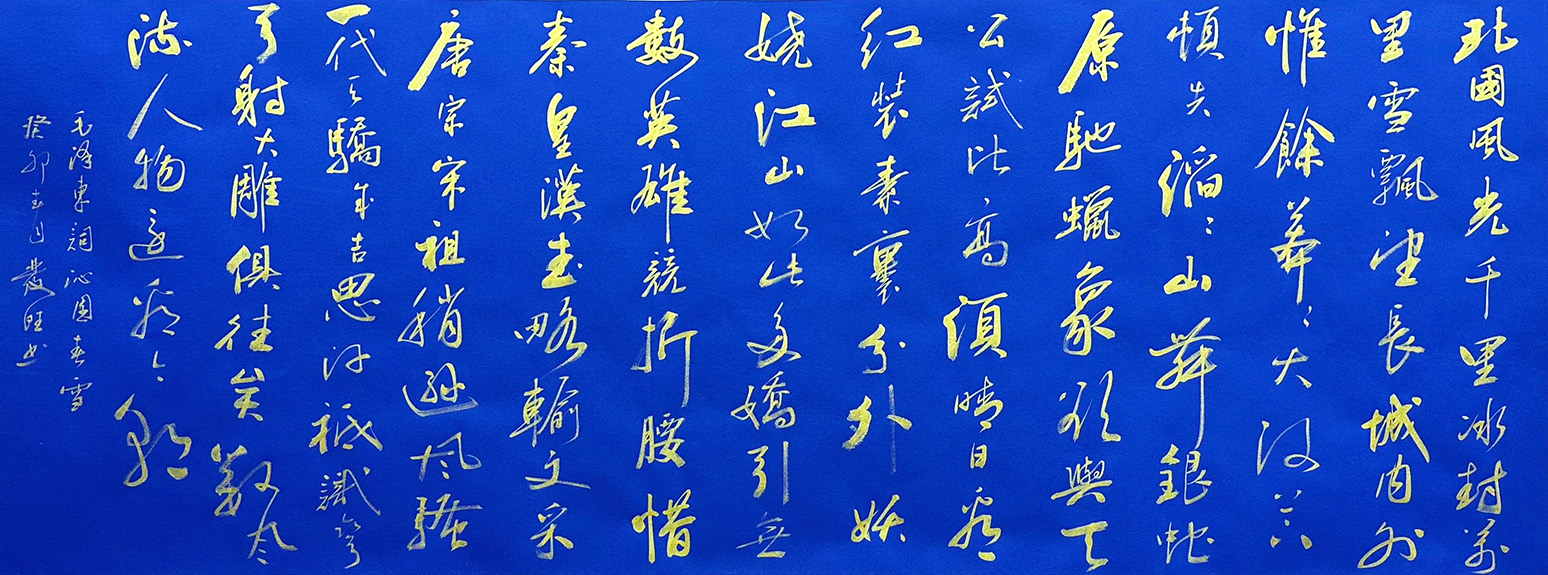 北國風光千里冰封萬
里雪飄望長城內外
惟餘莽〻大河上下
頓失滔〻山舞銀蛇
原馳蠟象欲與天
公試比高須晴日看
紅裝素裹分外妖
嬈江山如此多嬌引無
數英雄競折腰惜
秦皇漢武略輸文采
唐宗宋祖稍遜风騷
一代天驕成吉思汗祗識彎
弓射大雕俱往矣數风
流人物還看今朝
毛澤東詞沁園春雪
癸卯春月發旺书